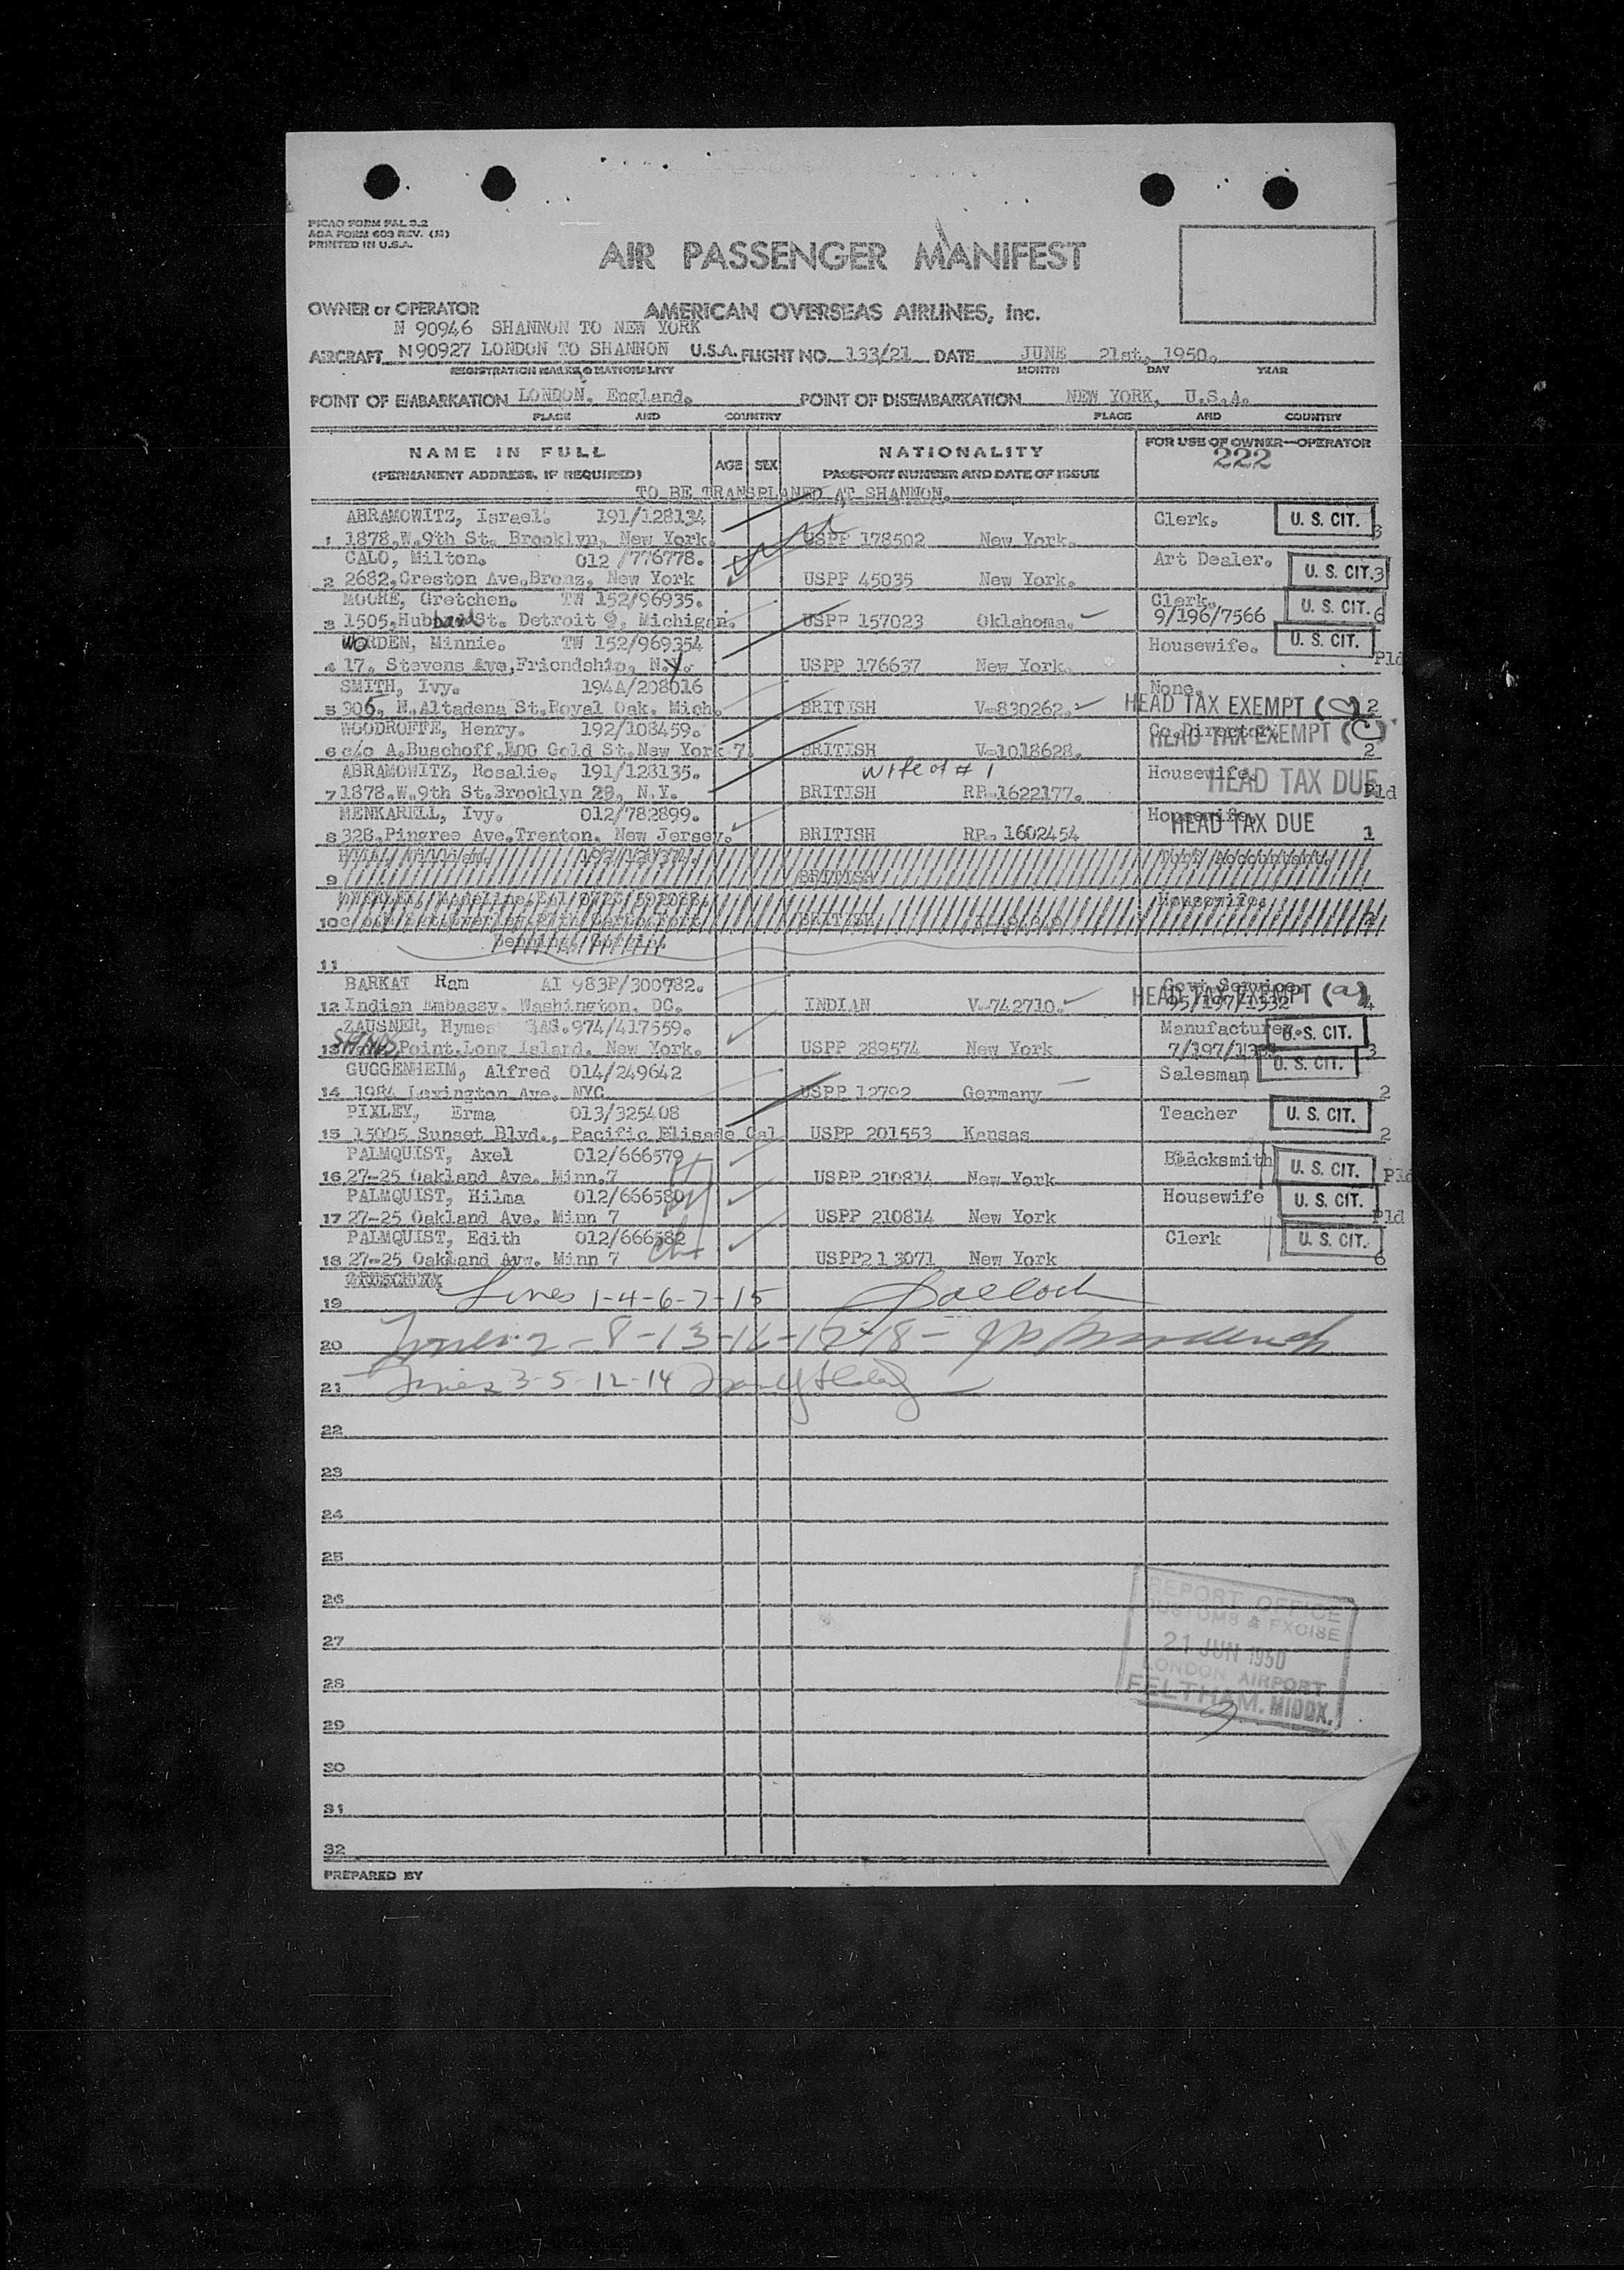 PICAO FORM PAL 3.2
AOA FORM 603 REV. (M)
PRINTED IN U.S.A.
AIR PASSENGER MANIFEST
OWNER or OPERATOR AMERICAN OVERSEAS AIRLINES, Inc.
N 90946 SHANNON TO NEW YORK
AIRCRAFT N 90927 LONDON TO SHANNON U.S.A. FLIGHT NO. 133/21 DATE JUNE 21st, 1950.
REGISTRATION MARKS & NATIONALITY MONTH DAY YEAR
POINT OF EMBARKATION LONDON. England. POINT OF DISEMBARKATION NEW YORK, U.S.A.
PLACE AND COUNTRY PLACE AND COUNTRY
NAME IN FULL AGE SEX NATIONALITY FOR USE OF OWNER—OPERATOR
222
(PERMANENT ADDRESS, IF REQUIRED) PASSPORT NUMBER AND DATE OF ISSUE
TO BE TRANSPLANED AT SHANNON.
ABRAMOWITZ, Israel. 191/128134 Clerk. U. S. CIT.
1 1878,W.9th St. Brooklyn, New York. USPP 178502 New York. 3
CALO, Milton. 012 /776778. Art Dealer. U. S. CIT. 3
2 2682,Creston Ave,Bronz, New York USPP 45035 New York.
MOORE, Gretchen. TW 152/96935. Clerk. U. S. CIT.
3 1505,Hubbard St. Detroit 9, Michigan. USPP 157023 Oklahoma. 9/196/7566 6
WORDEN, Minnie. TW 152/969354 Housewife. U. S. CIT.
4 17, Stevens Ave,Friendship, N.Y. USPP 176637 New York. Pld
SMITH, Ivy. 194A/208016 None.
5 306, N.Altadena St.Royal Oak. Mich. BRITISH V-830262. HEAD TAX EXEMPT 2
WOODROFFE, Henry. 192/108459. Co.Director. HEAD TAX EXEMPT (C)
6 c/o A.Buschoff,100 Gold St.New York 7. BRITISH V-1018628. 2
ABRAMOWITZ, Rosalie. 191/128135. wife of # 1 Housewife. HEAD TAX DUE
7 1878,W.9th St.Brooklyn 28, N.Y. BRITISH RP.1622177. Pld
MENKARELL, Ivy. 012/782899. Housewife. HEAD TAX DUE
8 328,Pingree Ave,Trenton. New Jersey. BRITISH RP. 1602454 1
Turf Accountant.
9 BRITISH
Housewife.
10 BRITISH
11
BARKAT Ram AI 983P/300782. Govt.Service.
12 Indian Embassy. Washington, DC. INDIAN V-742710. HEAD TAX EXEMPT (a) 95/197/1532 4
ZAUSNER, Hymes 974/417559. Manufacturer. U. S. CIT.
13 SANDS Point,Long Island, New York. USPP 289574 New York 3
GUGGENHEIM, Alfred 014/249642 Salesman U. S. CIT.
14 1984 Lexington Ave. NYC USPP 12792 Germany 2
PIXLEY, Erma 013/325408 Teacher U. S. CIT.
15 15005 Sunset Blvd., Pacific Elisade Cal USPP 201553 Kansas 2
PALMQUIST, Axel 012/666579 Blacksmith U. S. CIT.
16 27-25 Oakland Ave. Minn.7 USPP 210814 New York Pld
PALMQUIST, Hilma 012/666580 Housewife U. S. CIT.
17 27-25 Oakland Ave. Minn 7 USPP 210814 New York Pld
PALMQUIST, Edith 012/666582 Clerk U. S. CIT.
18 27-25 Oakland Avw. Minn 7 USPP213071 New York 6
19 Lines 1-4-6-7-15
20 Lines 2-8-13-16-17-18-
21 Lines 3-5-12-14
22
23
24
25
26
27
28
29
30
31
32
REPORT OFFICE
CUSTOMS & EXCISE
21 JUN 1950
LONDON AIRPORT
FELTHAM. MIDDX.
PREPARED BY